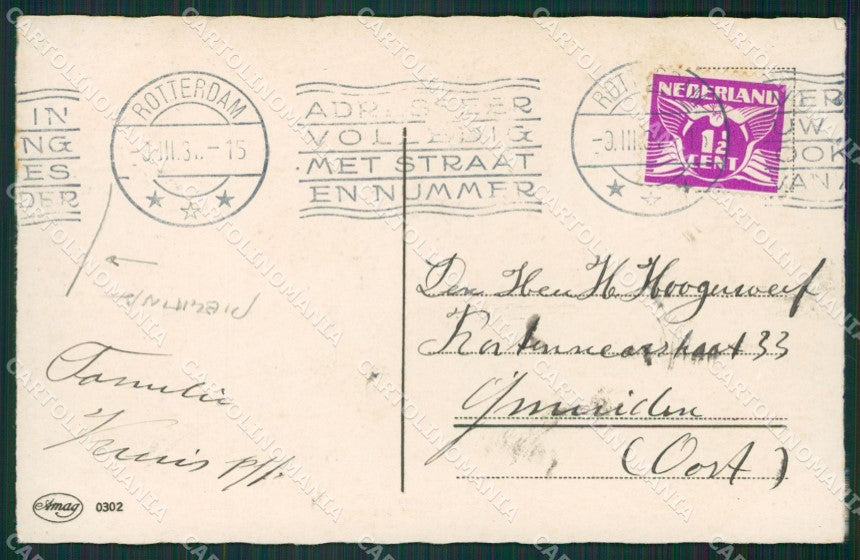 IN
NG
ES
DER
ROTTERDAM
III.3 - 15
ADRESSEER
VOLLEDIG
MET STRAAT
EN NUMMER
ROT
III.3
NEDERLAND
1½
CENT
MER
UW
OOK
VAN
Den Heer H Hoogerwerf
33
IJmuiden
(Oost)
Familie
Amag 0302
CARTOLINOMANIA